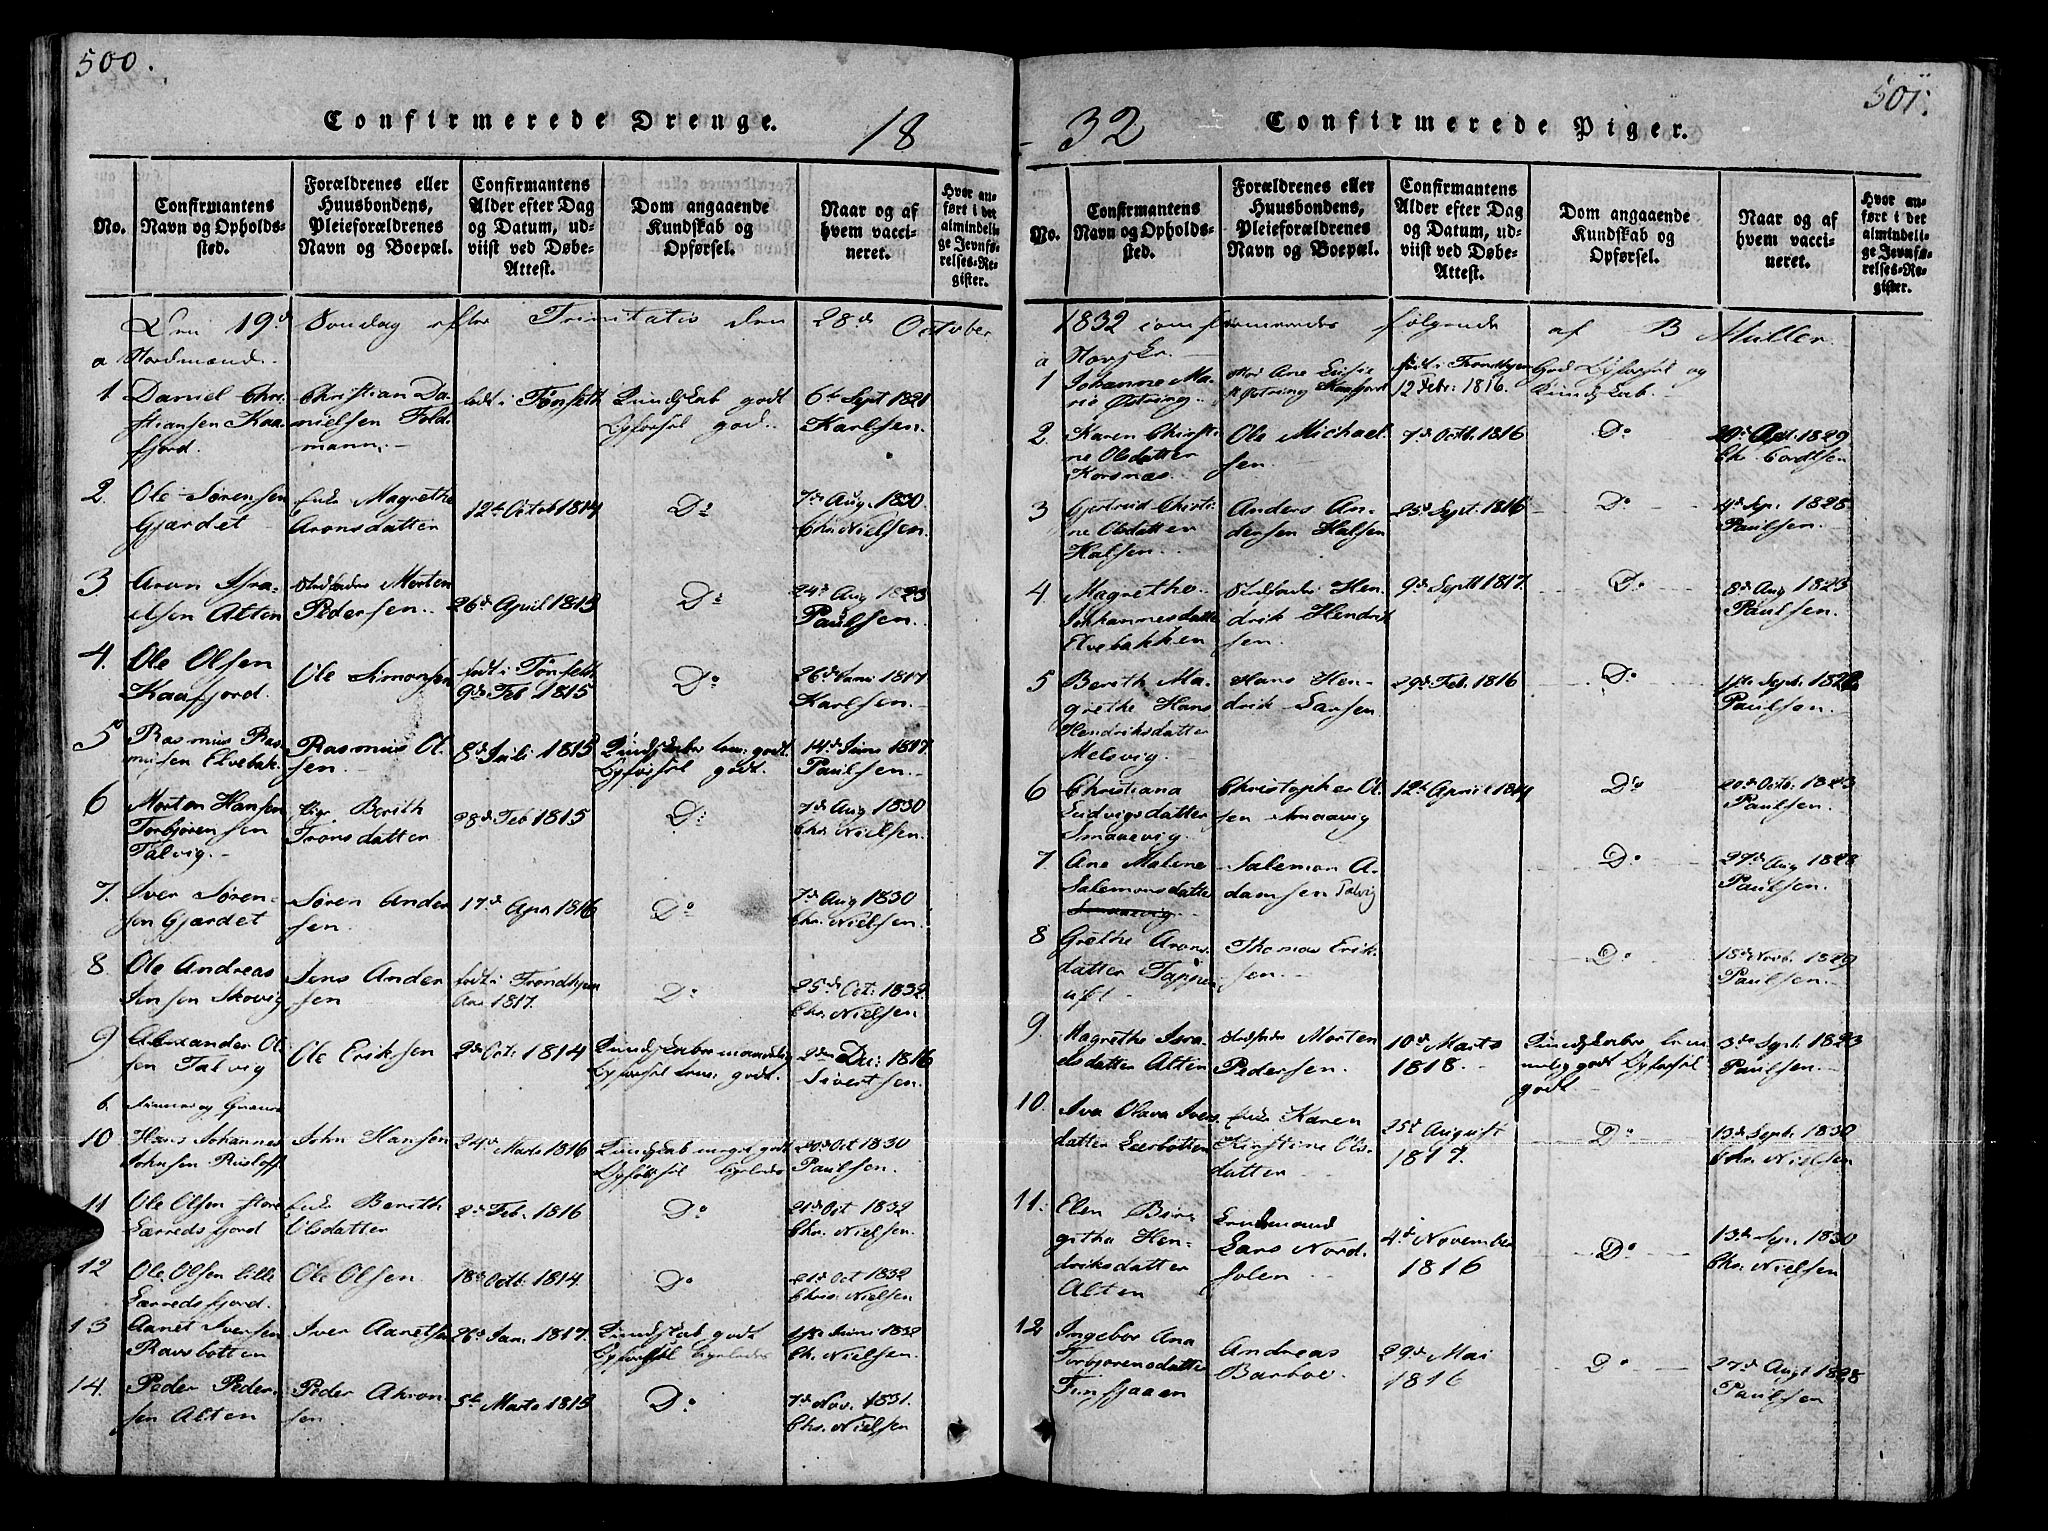 500.
Confirmerede Drenge.
18
No.
Confirmantens
Navn og Opholds-
sted.
Forældrenes eller
Huusbondens,
Pleieforældrenes
Navn og Boepæl.
Confirmantens
Alder efter Dag
og Datum, ud-
viist ved Døbe-
Attest.
Dom angaaende
Kundskab og
Opførsel.
Naar og af
hvem vacci-
neret.
Hvor an-
ført i det
almindeli-
ge Jevnfø-
relses-Re-
gister.
Den 19de Søndag efter Trinitatis den 28de October
a Nordmænd.
1 Daniel Chri-
stiansen Kaa-
fjord.
Christian Da-
nielsen Fold-
mann.
født i Tønseth
Kundskab godt
Opførsel god.
6te Sept 1821
Karlsen.
2. Ole Sørensen
Gjærdet
Enke Magrethe
Aronsdatter
12te Octob 1814
Do
7de Aug. 1830.
Chr. Nielsen.
3 Aron Isra-
elsen Alten
Stedfader Morten
Pedersen.
26de April 1815
Do
24de Aug 1823
Paulsen.
4. Ole Olsen
Kaafjord.
Ole Simonsen
født i Tønseth
9de Feb 1815
Do
26de Juni 1817
Karlsen.
5 Rasmus Ras-
musen Elvebak.
Rasmus Ol-
sen.
8de Juli 1815
godt.
Opførsel godt.
14de Juni 1817.
Paulsen.
6 Morten Hansen
Torbjøren-
sen
Talvig.
Pige Berith
Tronsdatter
28de Feb 1815
Do
7de Aug 1830
Chr. Nielsen.
7. Iver Søren-
sen Gjærdet
Søren Ander
sen.
17de Apr 1816
Do
7de Aug 1830
Chr. Nielsen.
8. Ole Andreas
Jensen Skovig
Jens Ander
sen
født i Trondhjem
Aar 1817.
Do
25de Oct: 1832.
Chr. Nielsen
9 Alexander Ol-
sen Talvig
Ole Eriksen
2de Oct: 1814
Kundskaber maadelig
Opførsel godt.
2den De: 1816
Sivertsen.
b.
10 Hans Johannes
Johnsen
John Hansen
24de Marts 1816
Kundskab meget godt
Opførsel ligeledes
20de Oct 1830
Paulsen.
11 Ole Olsen store
Lærredsfjord
Enke Berith
Olsdatter
2de Feb. 1816
Do
21de Oct 1832
Chr. Nielsen
12 Ole Olsen lille
Lærredsfjord.
Ole Olsen
18de Octb. 1814.
Do
21de Oct 1832
Chr. Nielsen
13 Aanet Iversen
Ravsbotten
Iver Aanetsen
26de Jan. 1817.
Kundskab godt
Opførsel ligeledes
Juni 1832
Ch. Nielsen.
14. Peder Peder-
sen Alten
Peder Ahron-
sen.
5te Marts 1815
Do
7de Nov. 1831.
Chr. Nielsen
501.
- 32
Confirmerede Piger.
No.
Confirmantens
Navn og Opholds-
sted.
Forældrenes eller
Huusbondens,
Pleieforældrenes
Navn og Boepæl.
Confirmantens
Alder efter Dag
og Datum, ud-
viist ved Døbe-
Attest.
Dom angaaende
Kundskab og
Opførsel.
Naar og af
hvem vacci-
neret.
Hvor an-
ført i det
almindeli-
ge Jevnfø-
relses-Re-
gister.
1832 confirmeredes følgende af B Müller.
a Norske.
1 Johanne Ma-
rie Østring.
Mor Ane
Østring Kaafjord
født i Trondhjem
12 Febr. 1816.
God Opførsel og
Kundskab.
2. Karen Christi-
ne Olsdatter
Korsnæs.
Ole Michael-
sen.
7de Octb. 1816
Do
1829
Chr. Cordtsen
3 Gjertrud Christi-
ne Olsdatter
Halsen.
Anders An-
dersen Halsen
23de Sept. 1816
Do
4de Sep. 1828.
Paulsen.
4. Magrethe
Johannesdatter
Elvebakken
Stedfader Hen-
drik Hendrik
sen.
9de Septb 1817.
Do
8de Aug 1823
Paulsen.
5 Berith Ma-
grethe Hans
Hendriksdatter
Melsvig.
Hans Hen-
drik Larsen.
29de Feb. 1816
Do
Sept. 1822
Paulsen.
6 Christiana
Ludvigsdatter
Smaavig.
Christopher Ol-
sen Smaavig
12te April 1819
Do
20de Octb. 1823
Paulsen.
7. Ane Malene
Salemonsdatter
Smaavig.
Salemon A-
damsen Talvig
Do
27de Aug 1828
Paulsen.
8 Grethe Arons
datter Tappen
uft.
Thomas Erik-
sen.
Do
18de Novb. 1829
Paulsen.
9. Magrethe Isra-
elsdatter Alten
Stedfader Morten
Pedersen.
10de Marts
1818.
Kundskaber
godt Opførsel
godt
3de Sept. 1823
Paulsen.
10. Iva Olava Ivers
datter Leerbotten
Enke Karen
Kirstine Ols-
datter
25de August
1817.
Do
13de Sept. 1830
Chr. Nielsen
11. Elen Bir-
githa Hen-
driksdatter
Alten
Lendsmand
Lars Nord-
Solen
4de November
1816
Do
13de Sep. 1830
Chr. Nielsen
12 Ingebor Ana
Torbjørensdatter
Tunfjaaen
Andreas
Barboe.
29de Mai
1816
Do
27de Augt 1828
Paulsen